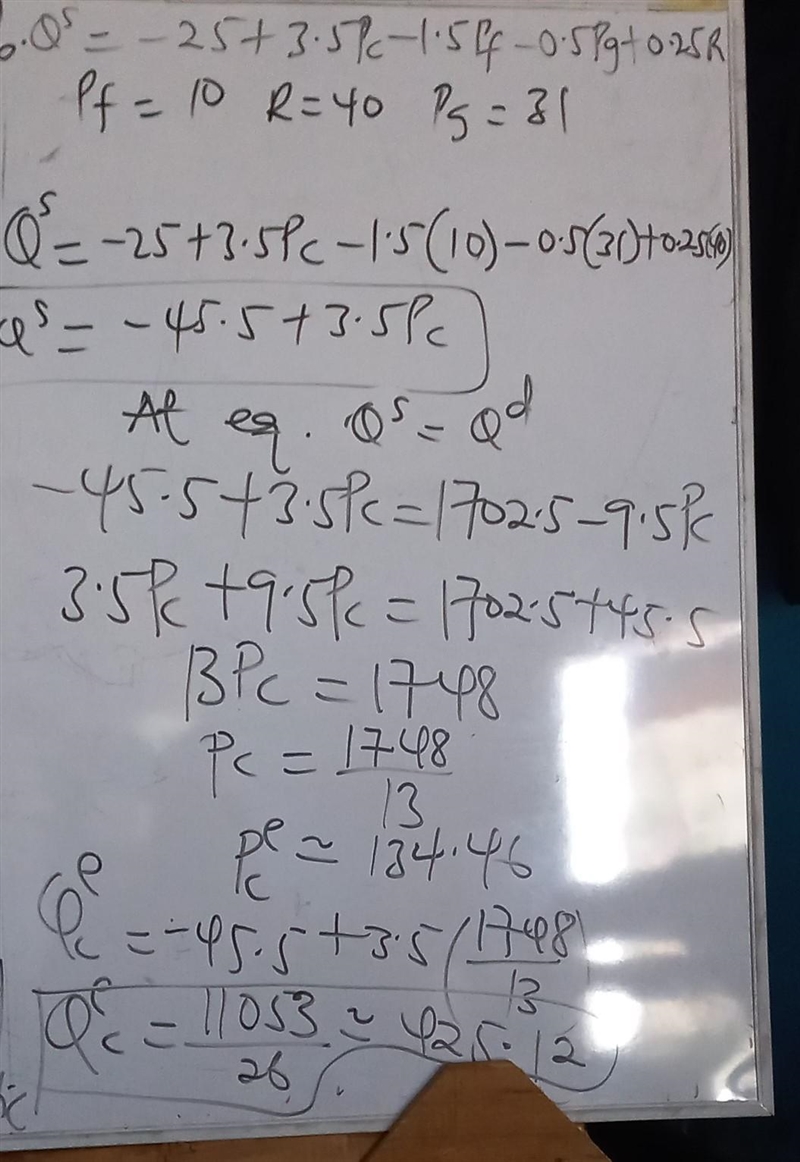 Qˢ = -25 + 3.5Pc - 1.5Pf - 0.5Pg + 0.25R
Pf = 10 R = 40 Pg = 31
Qˢ = -25 + 3.5Pc - 1.5(10) - 0.5(31) + 0.25(40)
Qˢ = -45.5 + 3.5Pc
At eq. Qˢ = Qᵈ
-45.5 + 3.5Pc = 1702.5 - 9.5Pc
3.5Pc + 9.5Pc = 1702.5 + 45.5
13Pc = 1748
Pc = 1748/13
Pcᵉ ≈ 134.46
Qcᵉ = -45.5 + 3.5(1748/13)
Qcᵉ = 11053/26 ≈ 425.12